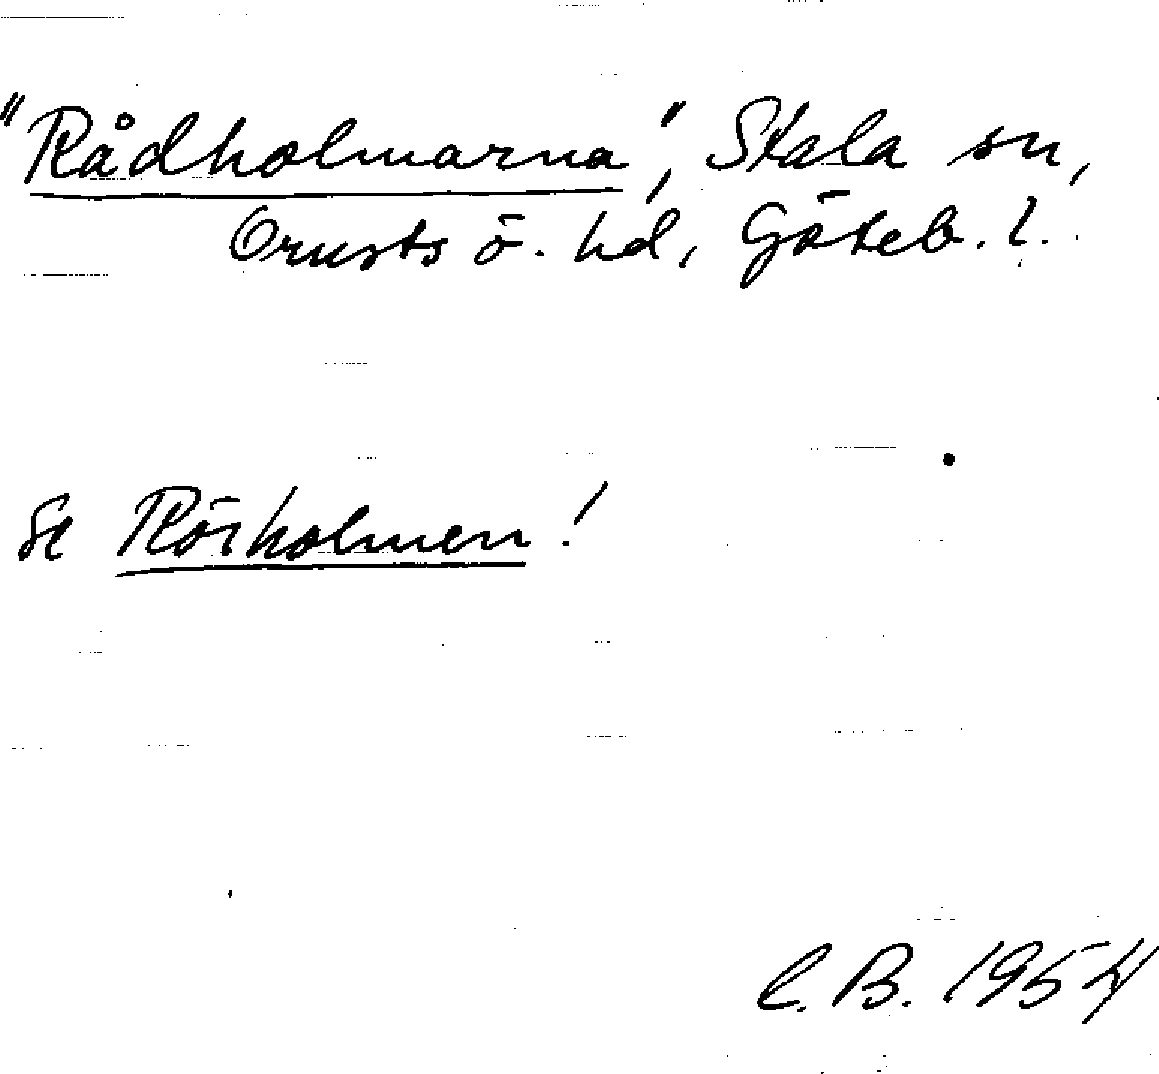 "Rådholmarna", Stala sn,
Orusts ö. hd, Göteb. l.
Se Rörholmen!
C. B. 1954